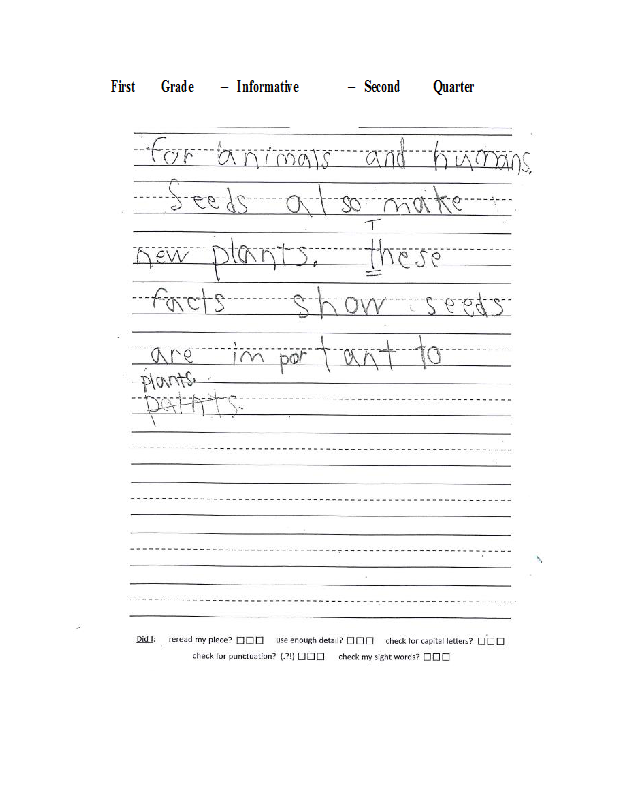 First Grade – Informative – Second Quarter
for animals and humans.
Seeds also make
T
new plants. these
facts show seeds
are important to
plants.
palnts.
Did I: reread my piece? ☐☐☐ use enough detail? ☐☐☐ check for capital letters? ☐☐☐
check for punctuation? (.?!) ☐☐☐ check my sight words? ☐☐☐